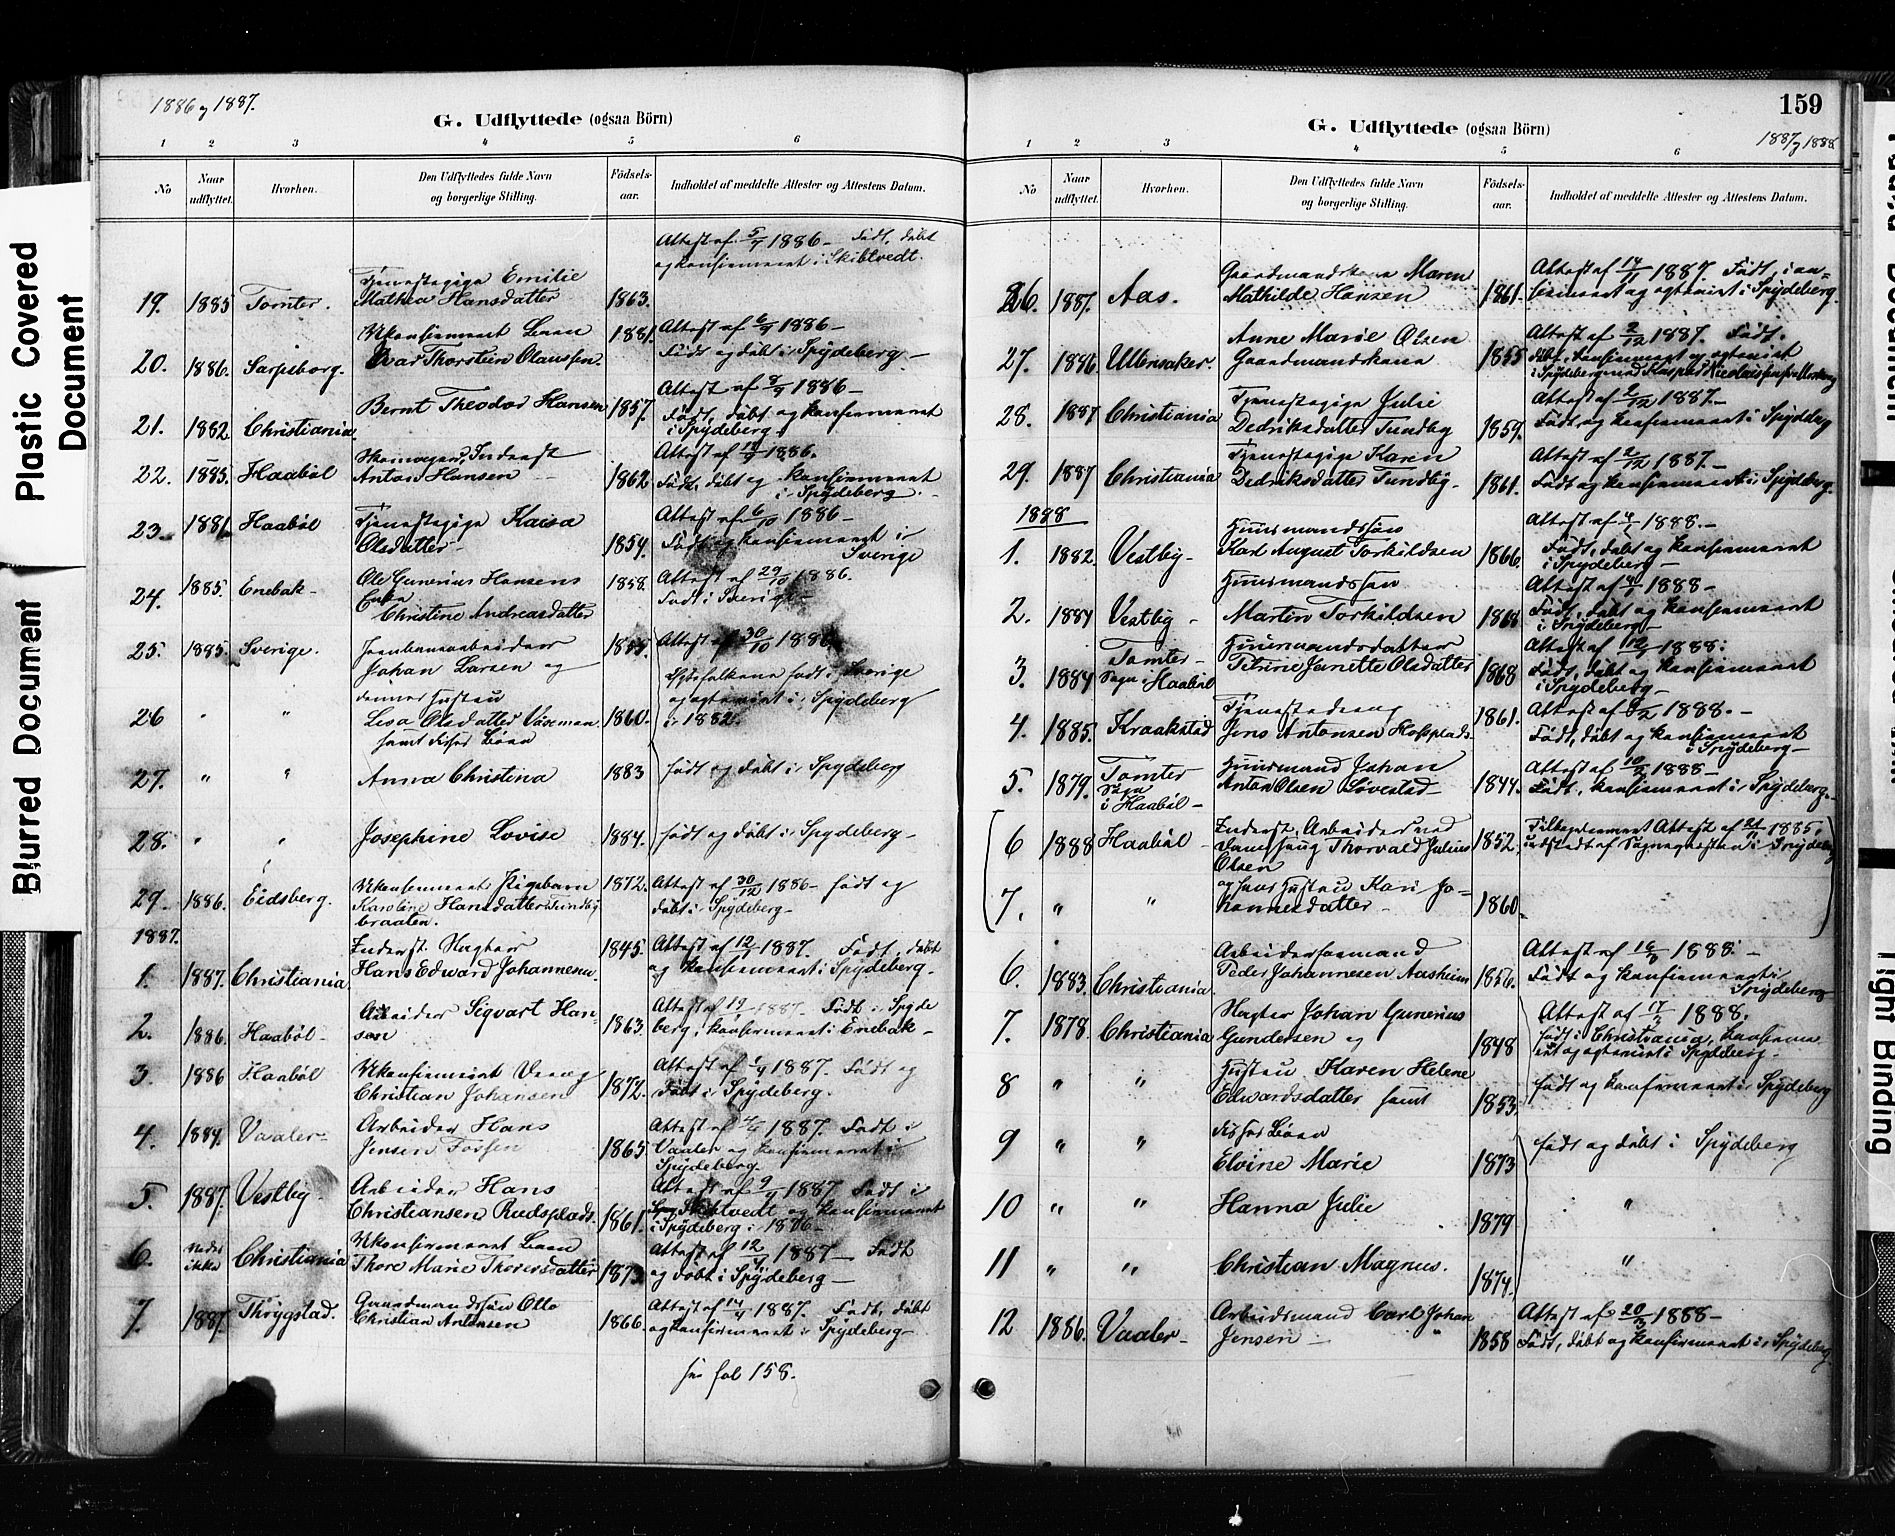 Plastic Covered
Document
Blurred Document
1886 og 1887.
G. Udflyttede (ogsaa Börn)
1 2 3 4 5 6
No
Naar udflyttet.
Hvorhen.
Den Udflyttedes fulde Navn og borgerlige Stilling.
Födselsaar.
Indholdet af meddelte Attester og Attestens Datum.
19. 1885 Tomter. Tjenestepige Emilie
Mathea Hansdatter 1863. Attest af 5/7 1886 – Födt, döbt
og konfirmeret i Skibtvedt.
20. 1886. Sarpsborg. Ukonfirmeret Barn
Thorstein Olaussen. 1881. Attest af 6/9 1886 –
Födt og döbt i Spydeberg –
21. 1882 Christiania. Bernt Theodor Hansen 1857. Attest af 8/9 1886 –
Födt, döbt og konfirmeret
i Spydeberg
22. 1885. Haabøl Skomager, Inderst
Anton Hansen – 1862 1886.
Födt, döbt og konfirmeret
i Spydeberg.
23. 1881. Haabøl Tjenestepige Kaisa
Olsdatter – 1854. Attest af 6/10 1886 –
Födt og konfirmeret i
Sverige
24. 1885. Enebak – Ole Gunerius Hansens
Enke
Christine Andreasdatter 1858. Attest af 29/10 1886.
Födt i Sverige –
25. 1885. Sverige. Jernbanearbeider
Johan Larsen og Attest af 30/10 1886
Ægtefolkene födt i Sverige
og ægteviet i Spydeberg
i 1882.
26 " " dennes Hustru
Lisa Olsdatter
samt disses Börn 1860.
27. " " Anna Christina 1883 födt og döbt i Spydeberg
28. " " Josephine Lovise 1884. födt og döbt i Spydeberg –
29. 1886. Eidsberg. Ukonfirmeret Pigebarn
Karoline Hansdatter Sundby
braaten. 1872. Attest af 30/12 1886 – födt og
döbt i Spydeberg –
1887.
1. 1887. Christiania. Inderst. Vægter
Hans Edward Johannesen 1845. Attest af 1887. Födt, döbt
og konfirmeret i Spydeberg.
2. 1886. Haabøl – Arbeider Sigvart Han-
sen 1863. Attest af 1887. Födt i Spyde
berg, konfirmeret i Enebak –
3. 1886 Haabøl Ukonfirmeret Dreng
Christian Johansen 1872. Attest af 1887. Födt og
döbt i Spydeberg.
4. 1884. Vaaler – Arbeider Hans
Jensen Fossen 1865 Attest af 1887. Födt i
Vaaler og konfirmeret i
Spydeberg.
5. 1887. Vestby – Arbeider Hans
Christiansen Rudsplads 1861. Attest af 1887 Födt i
Skibtvedt og konfirmeret
i Spydeberg i 1876 –
6. vides ikke Christiania Ukonfirmeret Barn
Thora Marie Thorersdatter 1873 Attest af 1887 – Födt
og döbt i Spydeberg –
7. 1887. Thrygstad. Gaardmandssön Otto
Christian Antonsen 1866 Attest af 14/4 1887. Födt, döbt
og konfirmeret i Spydeberg –
se fol 158.
159
1887 og 1888
G. Udflyttede (ogsaa Börn)
1 2 3 4 5 6
No
Naar udflyttet.
Hvorhen.
Den Udflyttedes fulde Navn og borgerlige Stilling.
Födselsaar.
Indholdet af meddelte Attester og Attestens Datum.
26. 1887. Aas. Gaardmandskone Maren
Mathilde Hansen 1861. Attest af 14/11 1887. Födt, kon-
firmeret og ægteviet i Spydeberg.
27. 1886 Ullensaker. Anne Marie Olsen
Gaardmandskone 1855 Attest af 2/12 1887. Födt,
döbt, konfirmeret og ægteviet
i Spydeberg med Kasper Nicolaisen fra
28. 1887 Christiania Tjenestepige Julie
Dedriksdatter Tundby 1859. Attest af 2/12 1887. –
Födt og konfirmeret i Spydeberg
29. 1887 Christiania Tjenestepige Karen
Dedriksdatter Tundby – 1861. Attest af 2/12 1887. –
Födt og konfirmeret i Spydeberg.
1888
1. 1882. Vestby – Huusmandssön
Karl August Torkildsen 1866. Attest af 1888. –
Födt, döbt og konfirmeret
i Spydeberg –
2. 1884 Vestby – Huusmandssön
Martin Torkildsen 1868 Attest af 1888 –
Födt, döbt og konfirmeret
i Spydeberg –
3. 1884 Tomter –
Sogn i Haabøl Huusmandsdatter
Petrine Janette Olsdatter 1868 Attest af 1888.
Födt, döbt og konfirmeret
i Spydeberg –
4. 1885. Kraakstad Tjenestedreng
Jens Antonsen 1861. Attest af 1888. –
Födt, döbt og konfirmeret
i Spydeberg –
5. 1879. Tomter
Sogn
i Haabøl – Huusmand Johan
Anton Olsen Løvestad – 1844. Attest af 10/2 1888 –
Födt, konfirmeret i Spydeberg.
6 1888 Haabøl – Inderst, Arbeider ved
Dampsaug Thorvald Julius
Olsen 1852. Tilbageleveret Attest af 21/11 1885.
udstedt af Sognepresten i Spydeberg
7. " " og hans Hustru Kari Jo-
hannesdatter – 1860.
6. 1883. Christiania. Arbeidsformand
Peder Johannesen Aasheim 1856. Attest af 16/3 1888. –
Födt og konfirmeret i
Spydeberg
7. 1878. Christiania Vægter Johan Gunerius
Gundersen og 1848 Attest af 17/3 1888.
födt i Christiania, konfirme
ret og ægteviet i Spydeberg.
8 " " Hustru Karen Helene
Edwardsdatter samt 1853. födt og konfirmeret i Spydeberg
9 " " disses Börn
Elvine Marie 1873 födt og döbt i Spydeberg
10 " " Hanna Julie 1879 "
11 " " Christian Magnus. 1874. "
12 1886. Vaaler – Arbeidsmand Carl Johan
Jensen – 1858 Attest af 20/3 1888 –
Födt, döbt og konfirmeret i Spydeberg
Tight Binding